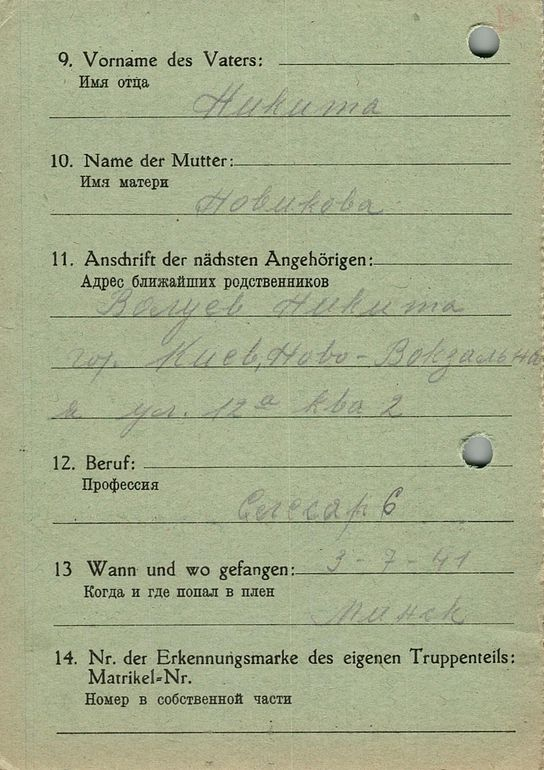 9. Vorname des Vaters:
Имя отца
Никита
10. Name der Mutter:
Имя матери
Новикова
11. Anschrift der nächsten Angehörigen:
Адрес ближайших родственников
Валуев Никита
гор. Киев, Ново-Вокзальна
я ул. 12а ква 2
12. Beruf:
Профессия
Слесар 6
13 Wann und wo gefangen: 3-7-41
Когда и где попал в плен
Минск
14. Nr. der Erkennungsmarke des eigenen Truppenteils:
Matrikel=Nr.
Номер в собственной части